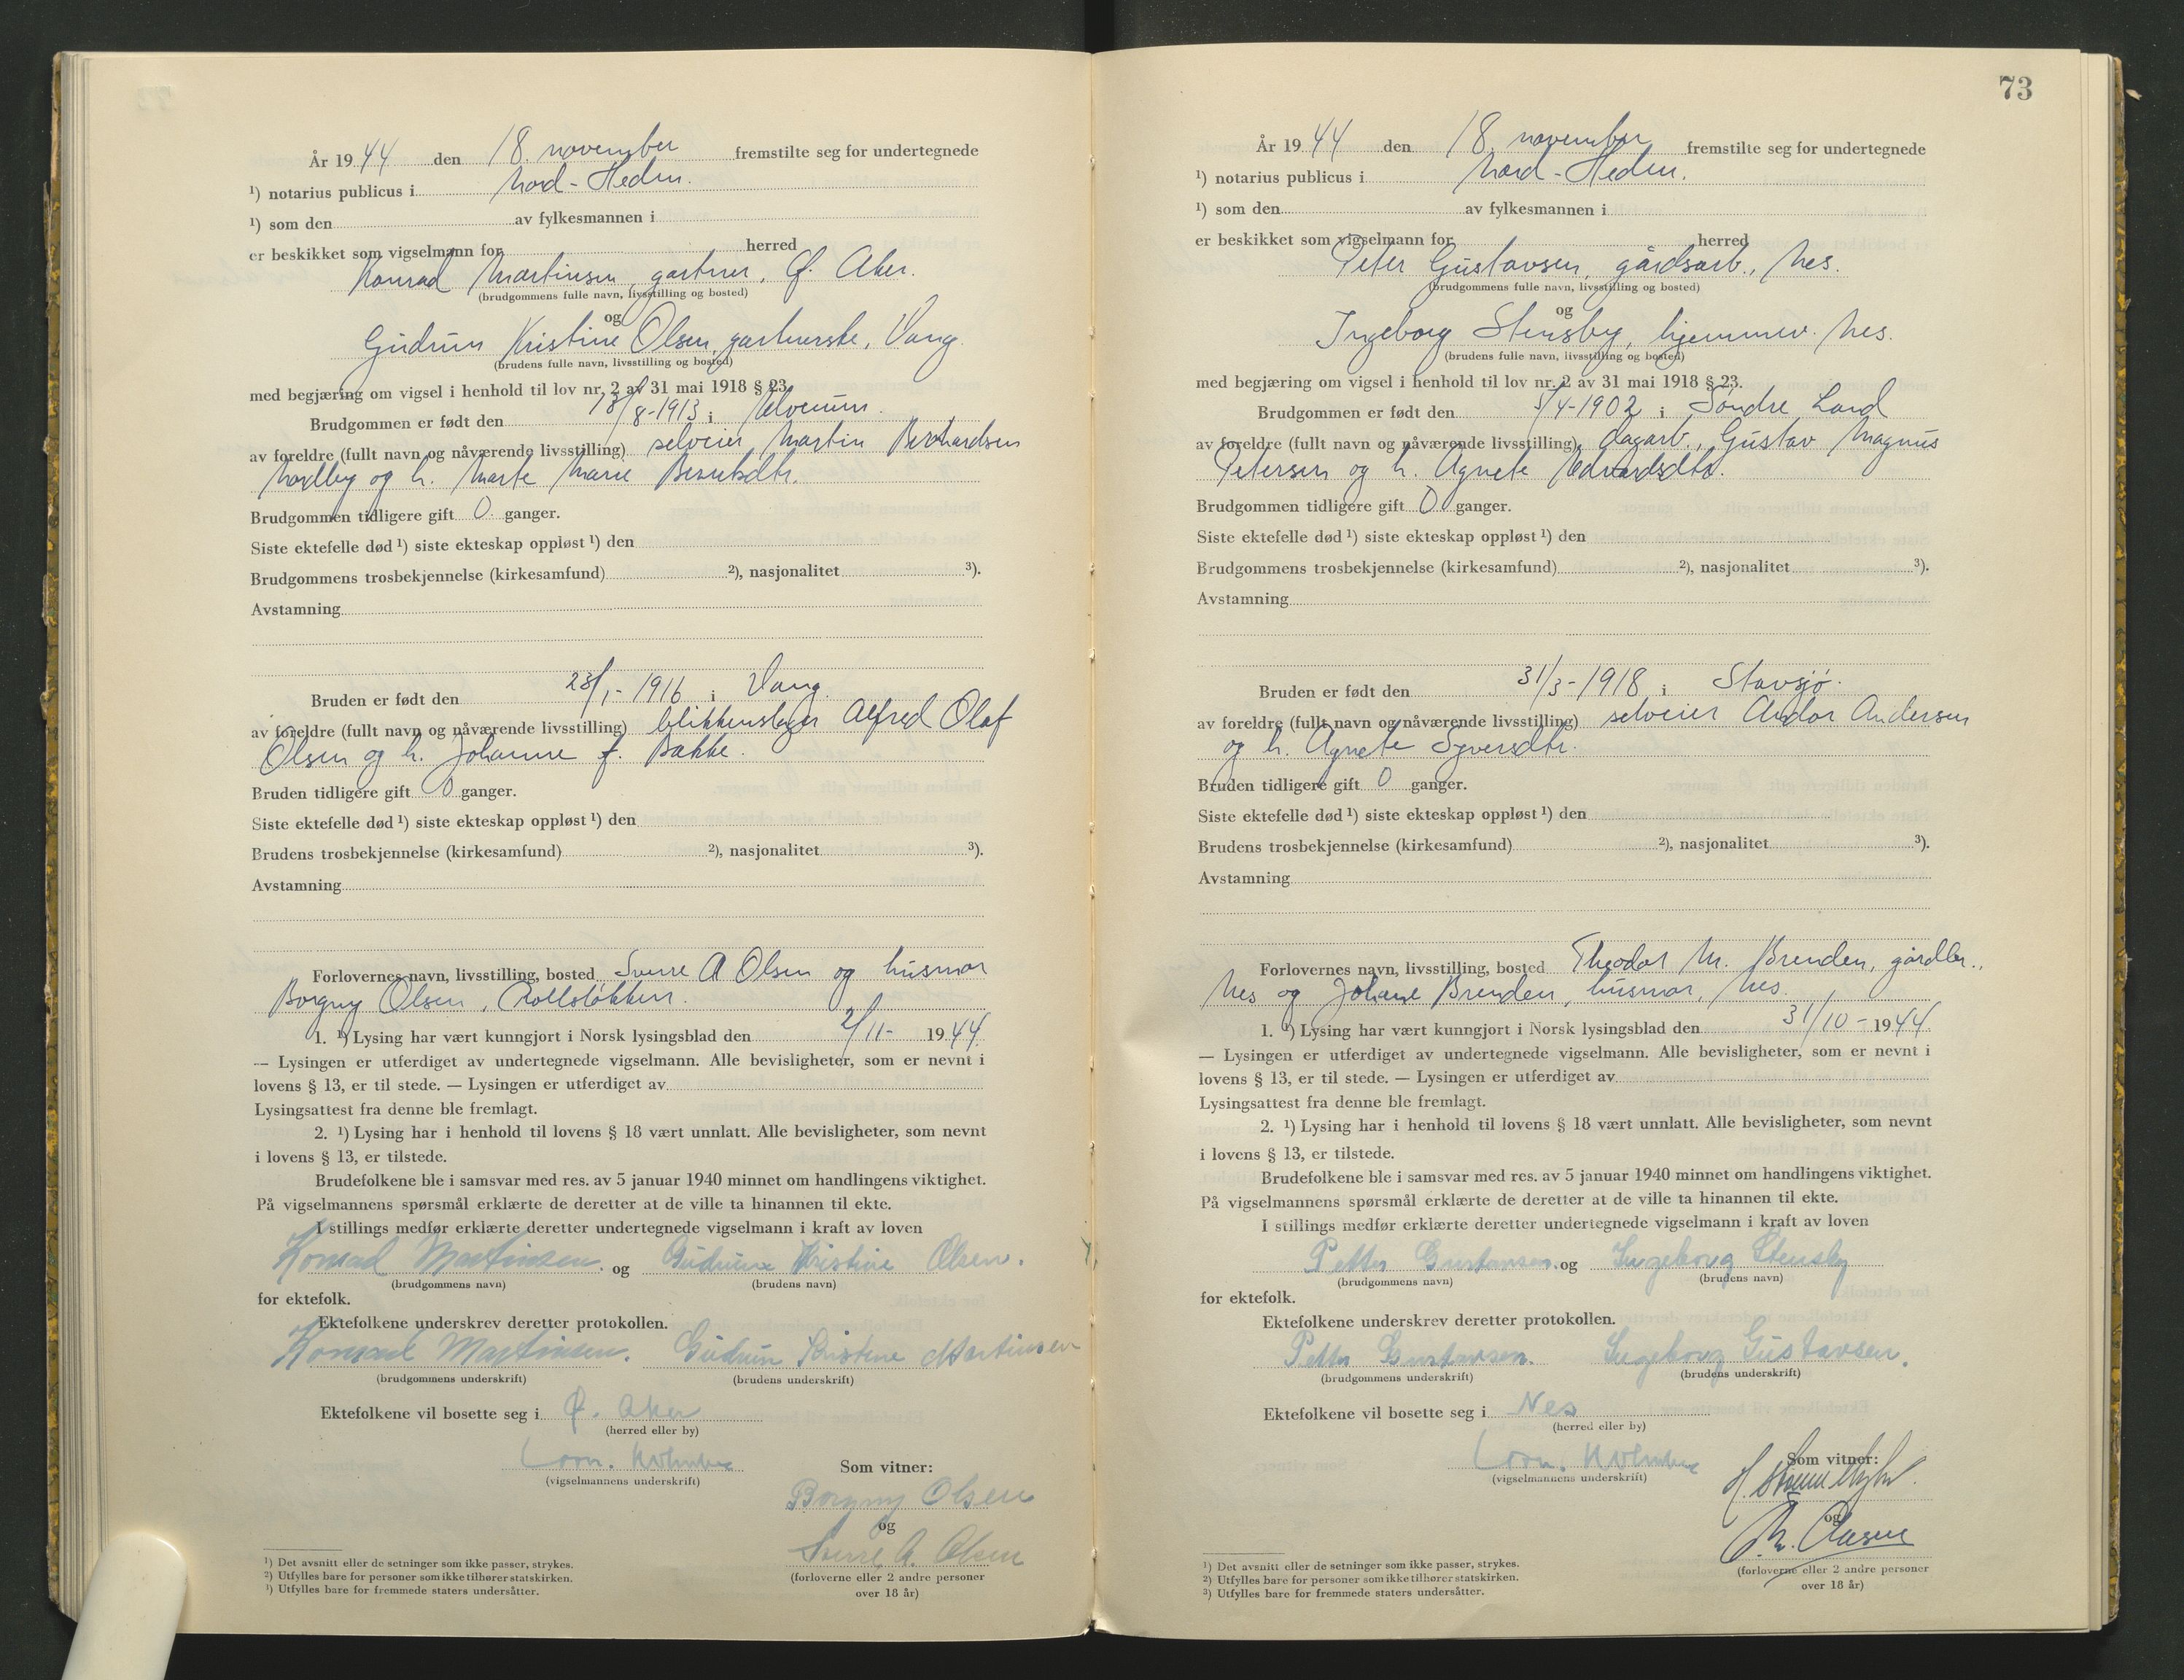 År 1944 den 18. november fremstilte seg for undertegnede
¹) notarius publicus i Nord-Hedm.
¹) som den av fylkesmannen i
er beskikket som vigselmann for herred
Konrad Martinsen, gartner, Ø. Aker.
(brudgommens fulle navn, livsstilling og bosted)
og
Gudrun Kristine Olsen, gartnerske, Vang.
(brudens fulle navn, livsstilling og bosted)
med begjæring om vigsel i henhold til lov nr. 2 av 31 mai 1918 § 23.
Brudgommen er født den 18/8-1913 i Elverum.
av foreldre (fullt navn og nåværende livsstilling) selveier Martin Bernhardsen
Nordby og h. Marte Marie Berntsdtr.
Brudgommen tidligere gift 0. ganger.
Siste ektefelle død ¹) siste ekteskap oppløst ¹) den
Brudgommens trosbekjennelse (kirkesamfund) ²), nasjonalitet ³).
Avstamning
Bruden er født den 23/1-1916 i Vang.
av foreldre (fullt navn og nåværende livsstilling) blikkenslager Alfred Olaf
Olsen og h. Johanne f. Bakke.
Bruden tidligere gift 0 ganger.
Siste ektefelle død ¹) siste ekteskap oppløst ¹) den
Brudens trosbekjennelse (kirkesamfund) ²), nasjonalitet ³).
Avstamning
Forlovernes navn, livsstilling, bosted Sverre A Olsen og husmor
Borgny Olsen,
1. ¹) Lysing har vært kunngjort i Norsk lysingsblad den 2/11- 1944.
— Lysingen er utferdiget av undertegnede vigselmann. Alle bevisligheter, som er nevnt i
lovens § 13, er til stede. — Lysingen er utferdiget av
Lysingsattest fra denne ble fremlagt.
2. ¹) Lysing har i henhold til lovens § 18 vært unnlatt. Alle bevisligheter, som nevnt
i lovens § 13, er tilstede.
Brudefolkene ble i samsvar med res. av 5 januar 1940 minnet om handlingens viktighet.
På vigselmannens spørsmål erklærte de deretter at de ville ta hinannen til ekte.
I stillings medfør erklærte deretter undertegnede vigselmann i kraft av loven
Konrad Martinsen. og Gudrun Kristine Olsen.
(brudgommens navn) (brudens navn)
for ektefolk.
Ektefolkene underskrev deretter protokollen.
Konrad Martinsen. Gudrun Kristine Martinsen
(brudgommens underskrift) (brudens underskrift)
Ektefolkene vil bosette seg i Ø. Aker
(herred eller by)
Som vitner:
(vigselmannens underskrift)
Borgny Olsen
og
Sverre A. Olsen
(forloverne eller 2 andre personer
over 18 år)
¹) Det avsnitt eller de setninger som ikke passer, strykes.
²) Utfylles bare for personer som ikke tilhører statskirken.
³) Utfylles bare for fremmede staters undersåtter.
73
År 1944 den 18. november fremstilte seg for undertegnede
¹) notarius publicus i Nord-Hedm.
¹) som den av fylkesmannen i
er beskikket som vigselmann for herred
Peter Gustavsen, gårdsarb., Nes.
(brudgommens fulle navn, livsstilling og bosted)
og
Ingeborg Stensby, hjemmev. Nes.
(brudens fulle navn, livsstilling og bosted)
med begjæring om vigsel i henhold til lov nr. 2 av 31 mai 1918 § 23.
Brudgommen er født den 5/4-1902 i Søndre Land
av foreldre (fullt navn og nåværende livsstilling) dagarb., Gustav Magnus
Petersen og h. Agnete Edvardsdtr.
Brudgommen tidligere gift 0 ganger.
Siste ektefelle død ¹) siste ekteskap oppløst ¹) den
Brudgommens trosbekjennelse (kirkesamfund) ²), nasjonalitet ³).
Avstamning
Bruden er født den 31/3-1918 i Stavsjø.
av foreldre (fullt navn og nåværende livsstilling) selveier Andor Andersen
og h. Agnete Syversdtr.
Bruden tidligere gift 0 ganger.
Siste ektefelle død ¹) siste ekteskap oppløst ¹) den
Brudens trosbekjennelse (kirkesamfund) ²), nasjonalitet ³).
Avstamning
Forlovernes navn, livsstilling, bosted Theodor M. Brenden,
Nes og Johane Brenden, husmor, Nes.
1. ¹) Lysing har vært kunngjort i Norsk lysingsblad den 31/10- 1944.
— Lysingen er utferdiget av undertegnede vigselmann. Alle bevisligheter, som er nevnt i
lovens § 13, er til stede. — Lysingen er utferdiget av
Lysingsattest fra denne ble fremlagt.
2. ¹) Lysing har i henhold til lovens § 18 vært unnlatt. Alle bevisligheter, som nevnt
i lovens § 13, er tilstede.
Brudefolkene ble i samsvar med res. av 5 januar 1940 minnet om handlingens viktighet.
På vigselmannens spørsmål erklærte de deretter at de ville ta hinannen til ekte.
I stillings medfør erklærte deretter undertegnede vigselmann i kraft av loven
Petter Gustavsen. og Ingeborg Stensby
(brudgommens navn) (brudens navn)
for ektefolk.
Ektefolkene underskrev deretter protokollen.
Petter Gustavsen. Ingeborg Gustavsen.
(brudgommens underskrift) (brudens underskrift)
Ektefolkene vil bosette seg i Nes
(herred eller by)
Som vitner:
(vigselmannens underskrift)
og
(forloverne eller 2 andre personer
over 18 år)
¹) Det avsnitt eller de setninger som ikke passer, strykes.
²) Utfylles bare for personer som ikke tilhører statskirken.
³) Utfylles bare for fremmede staters undersåtter.